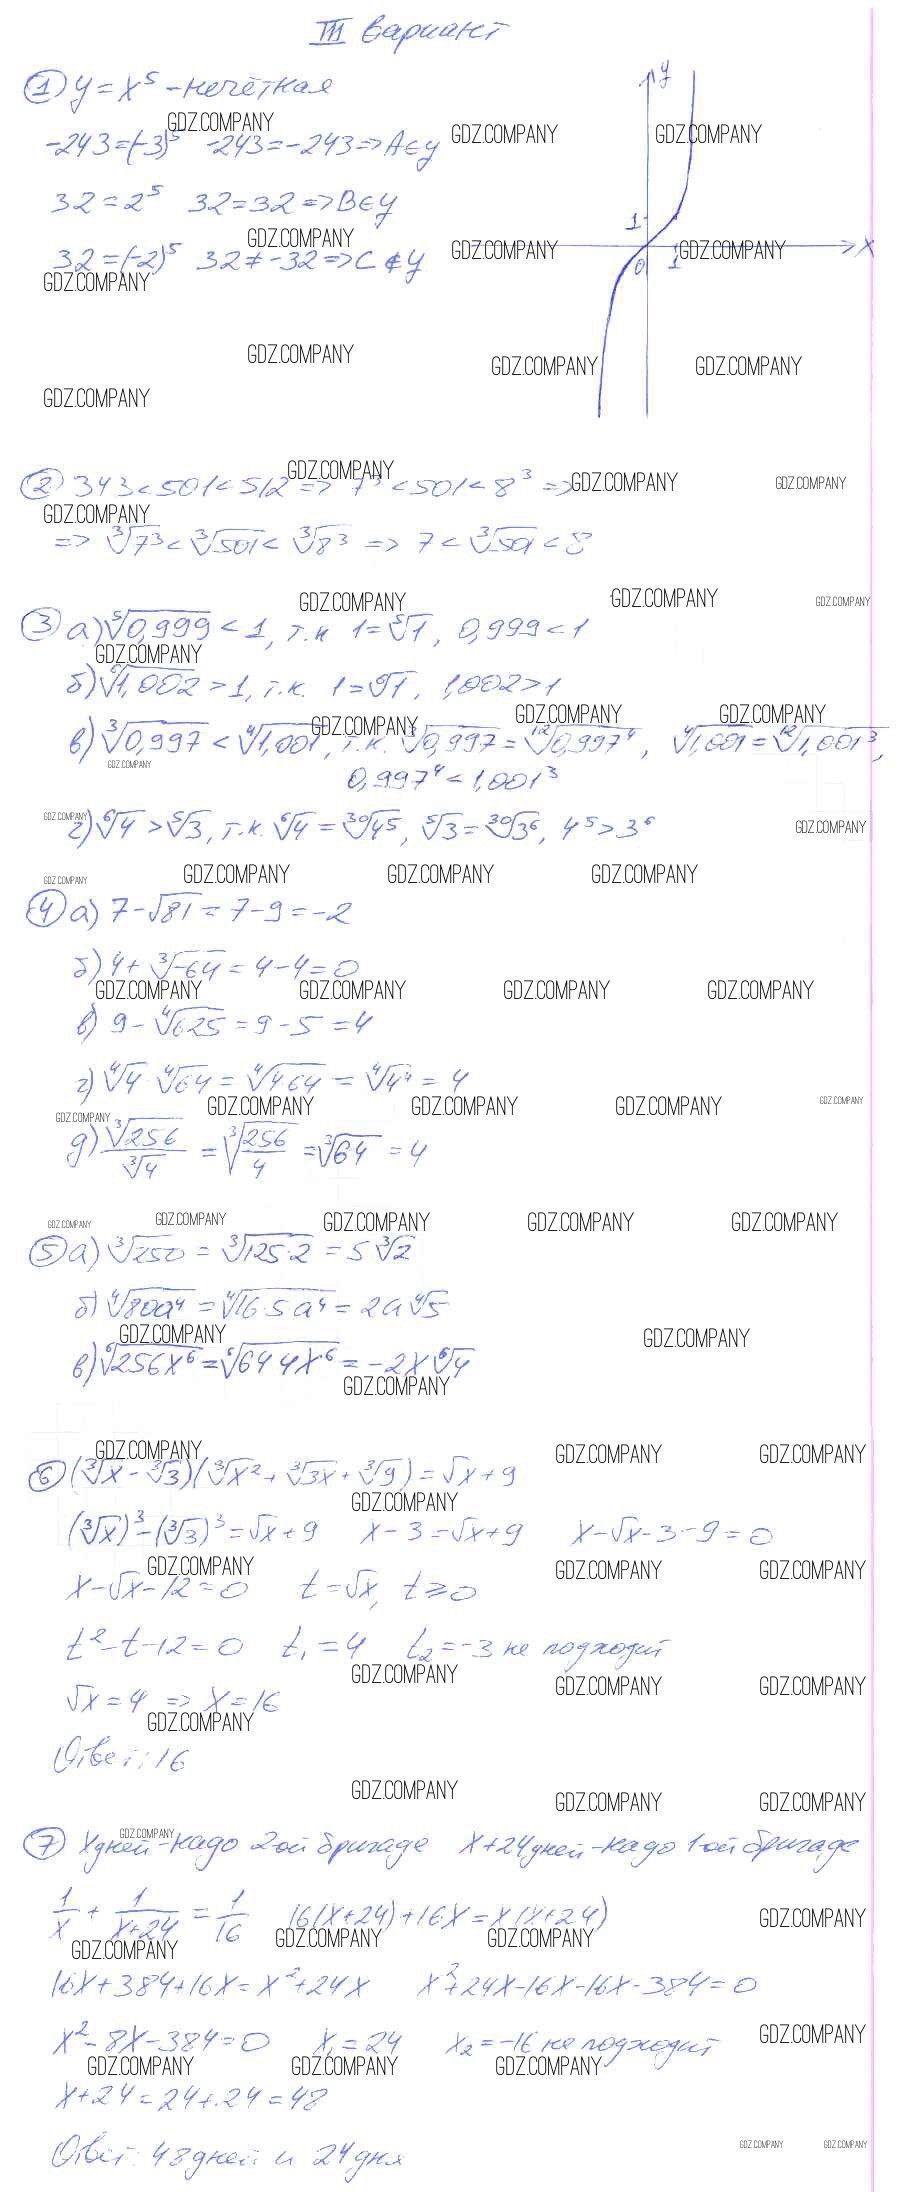 III вариант
① y = x⁵ - нечётная
-243 = (-3)⁵ -243 = -243 => A∈y
32 = 2⁵ 32 = 32 => B∈y
32 = (-2)⁵ 32 ≠ -32 => C∉y
y
1
0 1 x
② 343 < 501 < 512 => 7³ < 501 < 8³ =>
=> ∛7³ < ∛501 < ∛8³ => 7 < ∛501 < 8
③ а) ⁵√0,999 < 1, т.к 1 = ⁵√1, 0,999 < 1
б) ⁶√1,002 > 1, т.к. 1 = ⁶√1, 1,002 > 1
в) ∛0,997 < ∜1,001, т.к. ∛0,997 = ¹²√0,997⁴, ∜1,001 = ¹²√1,001³,
0,997⁴ < 1,001³
г) ⁶√4 > ⁵√3, т.к. ⁶√4 = ³⁰√4⁵, ⁵√3 = ³⁰√3⁶, 4⁵ > 3⁶
④ а) 7 - √81 = 7 - 9 = -2
б) 4 + ∛-64 = 4 - 4 = 0
в) 9 - ∜625 = 9 - 5 = 4
г) ∜4 · ∜64 = ∜4 64 = ∜4⁴ = 4
д) ∛256/∛4 = ∛(256/4) = ∛64 = 4
⑤ а) ∛250 = ∛125·2 = 5∛2
б) ∜80a⁴ = ∜16·5a⁴ = 2a∜5
в) ⁶√256x⁶ = ⁶√64 4x⁶ = -2x⁶√4
⑥ (∛x - ∛3)(∛x² + ∛3x + ∛9) = √x + 9
(∛x)³ - (∛3)³ = √x + 9 x - 3 = √x + 9 x - √x - 3 - 9 = 0
x - √x - 12 = 0 t = √x, t ≥ 0
t² - t - 12 = 0 t₁ = 4 t₂ = -3 не подходит
√x = 4 => x = 16
Ответ: 16
⑦ x дней - надо 2ой бригаде x + 24 дней - надо 1ой бригаде
1/x + 1/(x+24) = 1/16 16(x+24) + 16x = x(x+24)
16x + 384 + 16x = x² + 24x x² + 24x - 16x - 16x - 384 = 0
x² - 8x - 384 = 0 x₁ = 24 x₂ = -16 не подходит
x + 24 = 24 + 24 = 48
Ответ: 48 дней и 24 дня
GDZ.COMPANY